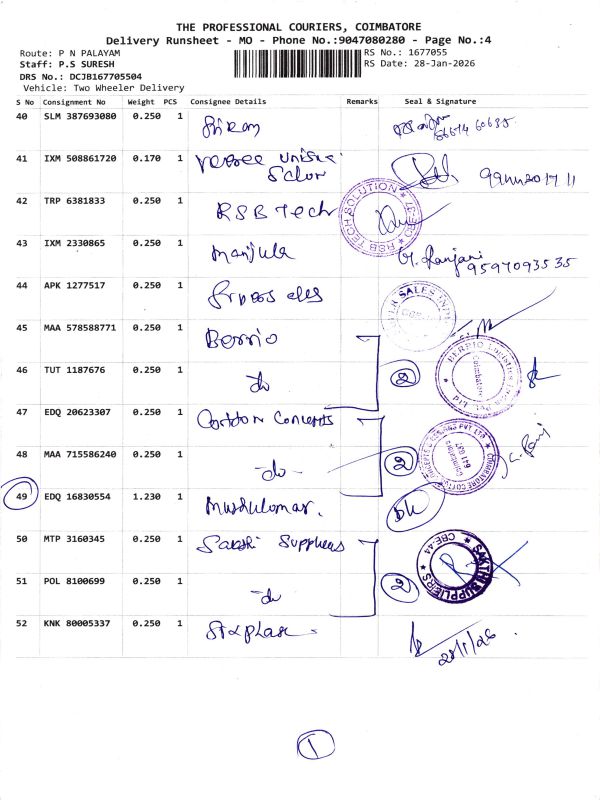 THE PROFESSIONAL COURIERS, COIMBATORE
Delivery Runsheet - MO - Phone No.:9047080280 - Page No.:4
Route: P N PALAYAM
RS No.: 1677055
Staff: P.S SURESH
RS Date: 28-Jan-2026
DRS No.: DCJB167705504
Vehicle: Two Wheeler Delivery
S No Consignment No Weight PCS Consignee Details Remarks Seal & Signature
40 SLM 387693080 0.250 1
41 IXM 508861720 0.170 1
42 TRP 6381833 0.250 1 RSB Tech RSB TECH SOLUTION
43 IXM 2330865 0.250 1 Manjula 9597093535
44 APK 1277517 0.250 1
45 MAA 578588771 0.250 1 Berrio
46 TUT 1187676 0.250 1 do 2
47 EDQ 20623307 0.250 1 Concents
48 MAA 715586240 0.250 1 do 2
49 EDQ 16830554 1.230 1
50 MTP 3160345 0.250 1 Sakthi Suppliers
51 POL 8100699 0.250 1 do 2 SAKTHI SUPPLIERS CBE-44
52 KNK 80005337 0.250 1 28/1/26
1